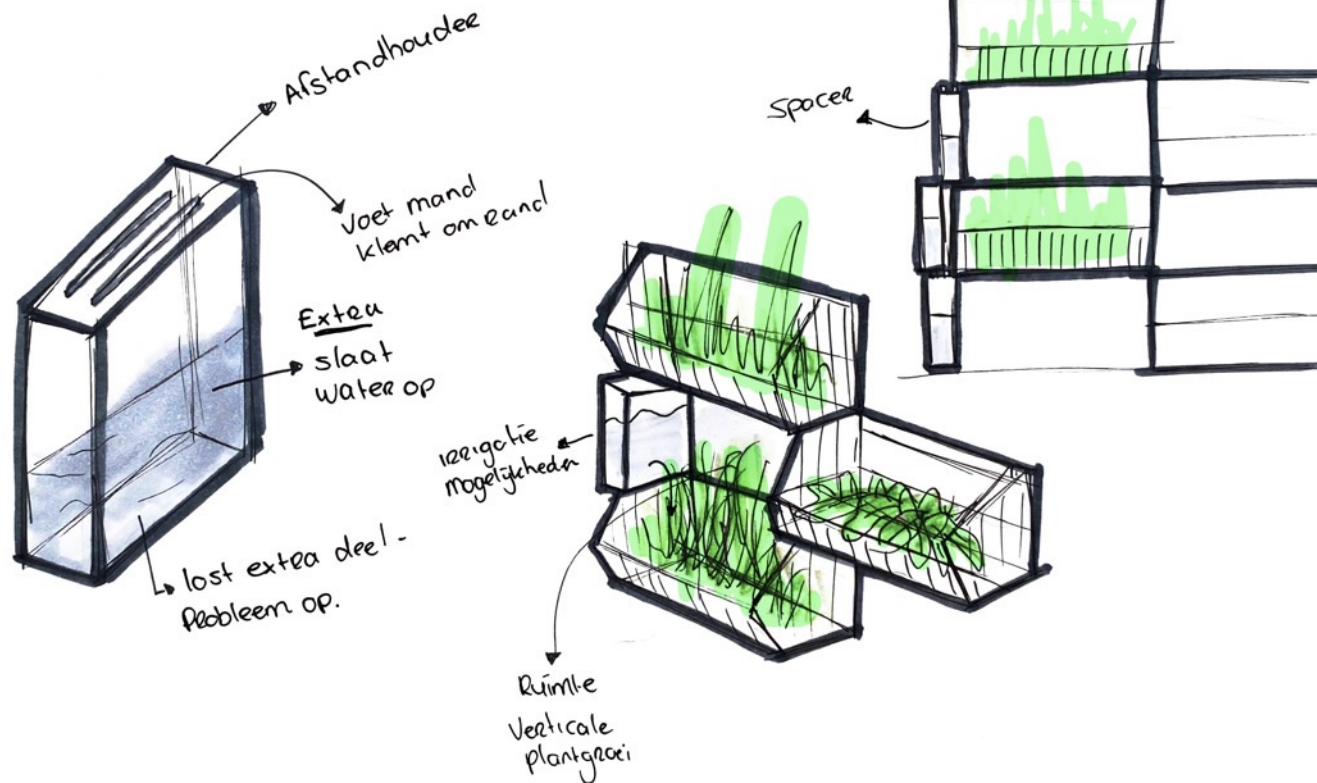 Afstandhouder
Voet mand
klemt om rand
Extra
slaat
water op
lost extra deel-
probleem op.
Spacer
irrigatie
mogelijkheden
Ruimte
verticale
plantgroei